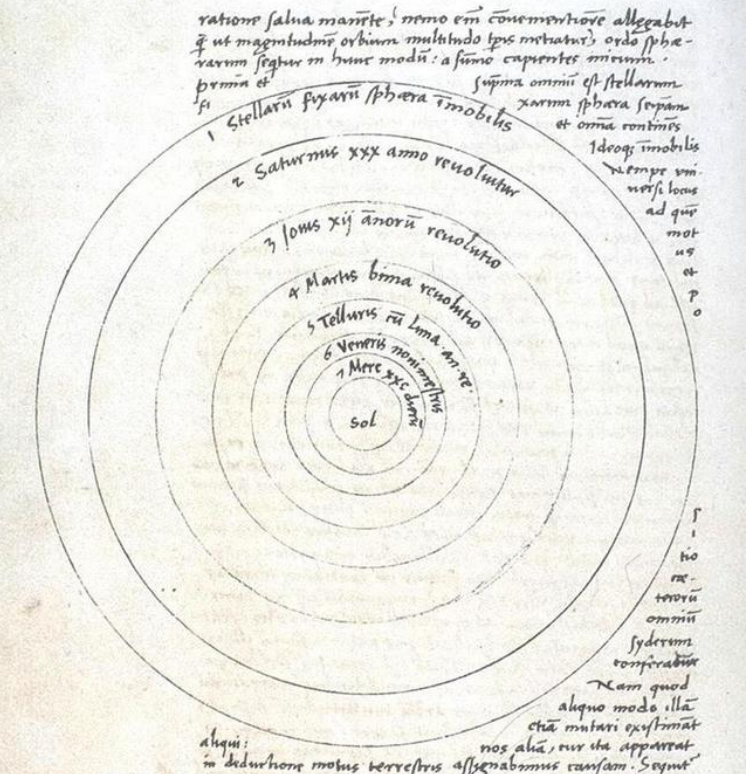 ratione salua manēte, nemo em̄ cōuenientiorē allegabit
q̄ ut magnitudinē orbium multitudo tp̄is metiatur, ordo sphæ-
rarum seq̄tur in hunc modū: a sūmo capientes initium.
prima et sup̄ma omniū est stellarum
fi xarum sphæra seipam
et omīa continēs
Ideoq; īmobilis
Nempe vni-
uersi locus
ad quē
mot
us
et
p
o
1 Stellarū fixarū sphæra īmobilis
2 Saturnus xxx anno reuoluitur
3 Iouis xij ānorū reuolutio
4 Martis bima reuolutio
5 Telluris cū Luna an. re.
6 Veneris nonimestris
7 Merc xxc dierū
Sol
s
i
tio
cæ-
terorū
omniū
syderum
conferatur
Nam quod
aliquo modo illā
etiā mutari existimāt
aliqui: nos aliā, cur ita appareat
in deductione motus terrestris assignabimus causam. Sequit̄